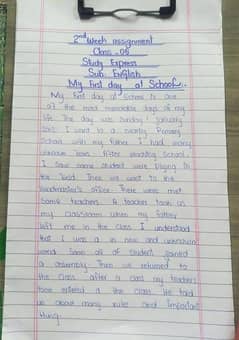 2nd Week assignment
Class - 05
Study Express
Sub: English
My First day at School.
My first day at School is one
of the most memorable days of my
life. The day was Sunday 1 January
I went to a nearby Primary
School with my father. I had many
After reaching School.
I saw some student were playing in
the field. Then we went to the
headmaster's office. There were met
Some teachers. A teacher took us
my classroom when my father
left me in the class I understood
that I was a in new and unknown
world. Soon all of student joined
a assembly. Then we returned to
the Class. After a class my teachers
entered it the class. He told
us about many rules and important
thing.